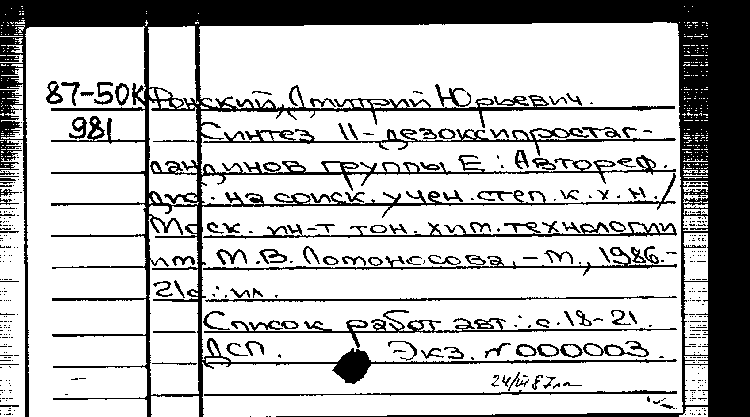 87-50К Фонский, Дмитрий Юрьевич.
981 Синтез 11-дезоксипростаг-
ландинов группы Е : Автореф.
дис. на соиск. учен. степ. к. х. н. /
Моск. ин-т тон. хим. технологии
им. М.В. Ломоносова, - М., 1986.-
21с.: ил.
Список работ авт.: с. 18-21.
ДСП. Экз. N 000003.
24/III 87